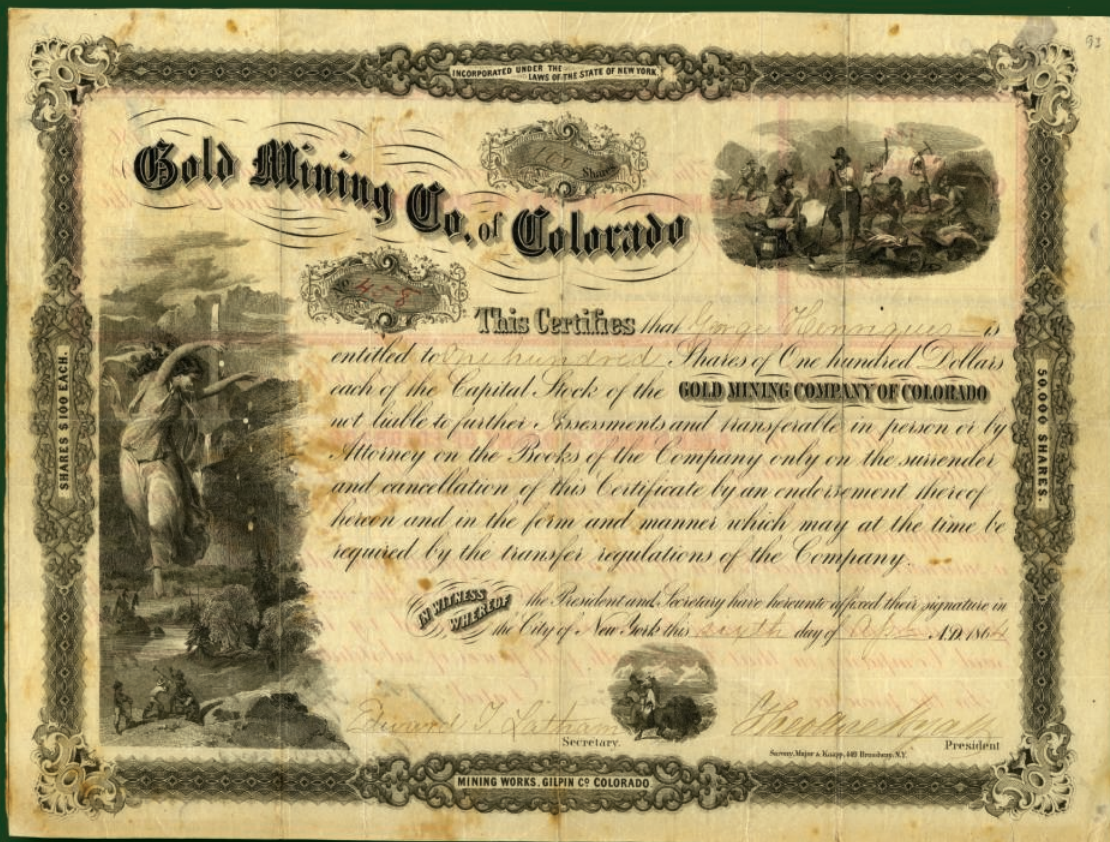 93
INCORPORATED UNDER THE
LAWS OF THE STATE OF NEW YORK.
100 Shares
Gold Mining Co. of Colorado
No 458
This Certifies that George Henriques is
entitled to One hundred Shares of One hundred Dollars
each of the Capital Stock of the GOLD MINING COMPANY OF COLORADO
not liable to further Assessments and transferable in person or by
Attorney on the Books of the Company only on the surrender
and cancellation of this Certificate by an endorsement thereof
hereon and in the form and manner which may at the time be
required by the transfer regulations of the Company.
IN WITNESS
WHEREOF
the President and Secretary have hereunto affixed their signature in
the City of New York this sixth day of A.D. 1864
SHARES $100 EACH.
50,000 SHARES.
Edward T. Latham
Secretary.
President
Sarony, Major & Knapp, 449 Broadway, N.Y.
MINING WORKS, GILPIN Co COLORADO.